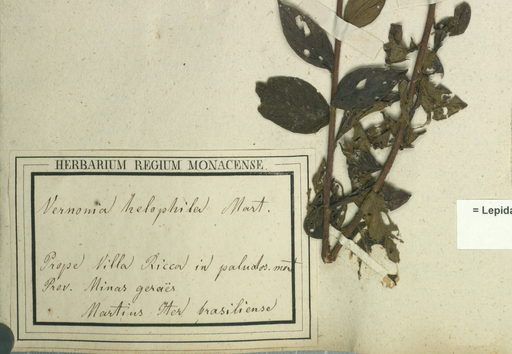 HERBARIUM REGIUM MONACENSE
Vernonia helophila Mart.
Prope Villa Ricca in paludos. mont
Prov. Minas geraës
Martius Iter brasiliense
= Lepida